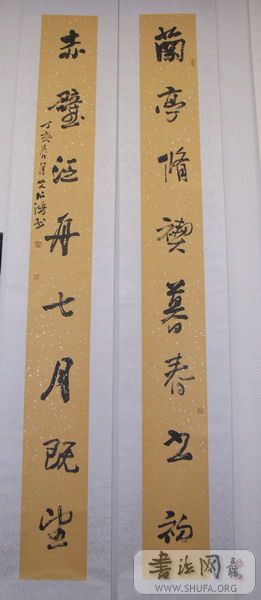 蘭亭脩禊暮春之初
赤壁泛舟七月既望
丁亥春月
書法网
WWW.SHUFA.ORG